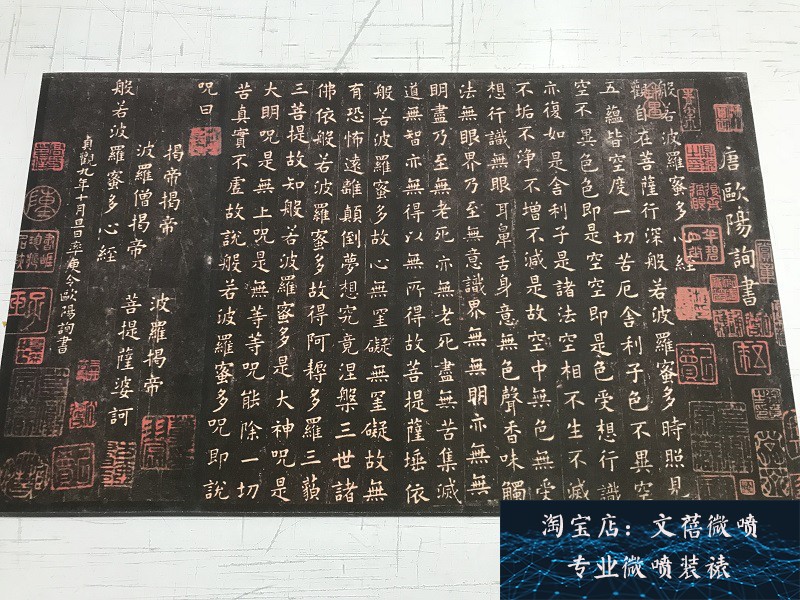 唐歐陽詢書
般若波羅蜜多心經
觀自在菩薩行深般若波羅蜜多時照見
五蘊皆空度一切苦厄舍利子色不異空
空不異色色即是空空即是色受想行識
亦復如是舍利子是諸法空相不生不滅
不垢不淨不增不減是故空中無色無受
想行識無眼耳鼻舌身意無色聲香味觸
法無眼界乃至無意識界無無明亦無無
明盡乃至無老死亦無老死盡無苦集滅
道無智亦無得以無所得故菩提薩埵依
般若波羅蜜多故心無罣礙無罣礙故無
有恐怖遠離顛倒夢想究竟涅槃三世諸
佛依般若波羅蜜多故得阿耨多羅三藐
三菩提故知般若波羅蜜多是大神咒是
大明咒是無上咒是無等等咒能除一切
苦真實不虛故說般若波羅蜜多咒即說
咒曰
揭帝揭帝 波羅揭帝
波羅僧揭帝 菩提薩婆訶
般若波羅蜜多心經
貞觀九年十月旦日率更令歐陽詢書
淘宝店：文蓓微喷
专业微喷装裱